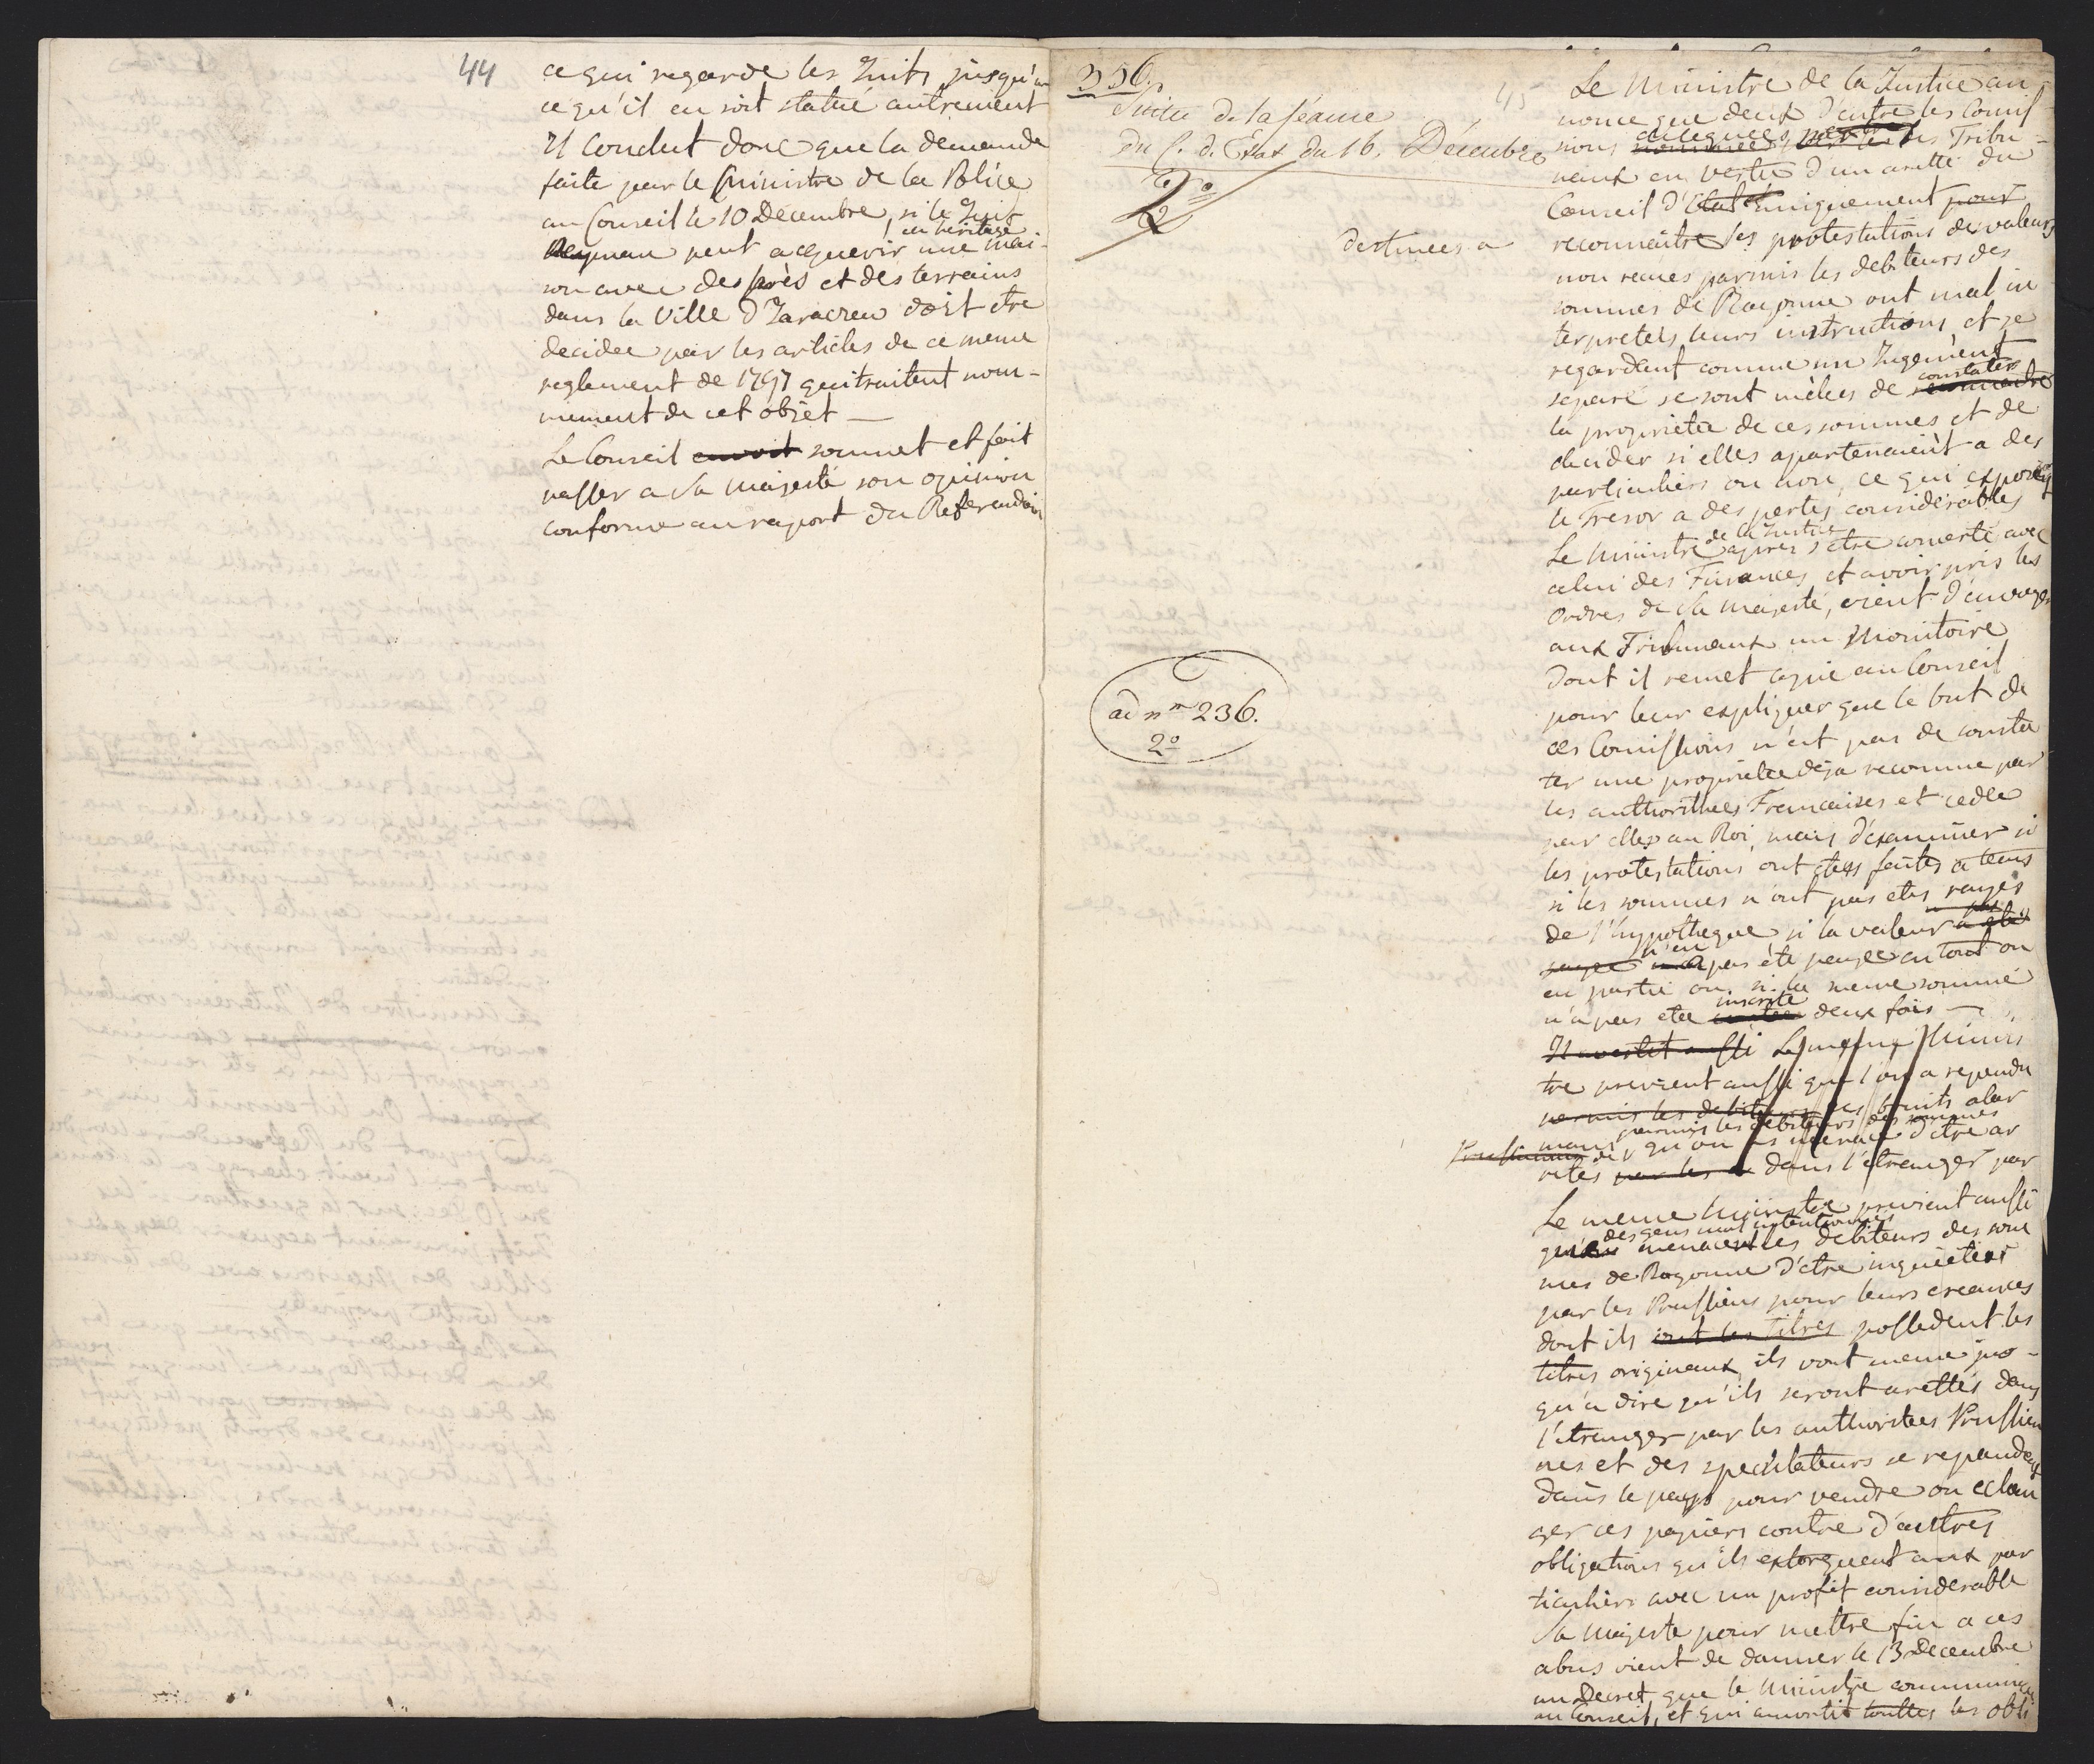 44
ce qui regarde les Juifs jusqu'a
ce qu'il en soit statué autrement
Il conclut donc que la demande
faite par le Ministre de la Police
au Conseil le 10 Decembre, si le Juif
en heritage
peut acquerir une mai-
son avec des près et des terrains
dans la Ville d'Zaraczew doit etre
decidee par les articles de ce meme
reglement de 1797 qui traitent nom-
mement de cet objet —
Le Conseil envoit soumet et fait
passer a Sa Majesté son opinion
conforme au raport du Referendair
356.
45
Suitte de la séance
du C. d. Etat du 16. Décembre
2º
destinees a
ad nm 236.
2º
Le Ministre de la Justice an-
nonce que deux d'entre les Comis
deleguees
nous nommees par les Tribu-
naux en vertu d'un arette du
Conseil d'Etat uniquement pour
reconnaitre les protestations de valeurs
non recues parmis les debiteurs des
sommes de Bayonne ont mal in
terpretels leurs instructions et se
regardent comme un Jugement
constater
separé se sont mêlees de reconnaitre
la proprietee de ces sommes et de
decider si elles apartenaient a des
particuliers ou non, ce qui exposait
le Tresor a des pertes considerables
de la Justice
Le Ministre apres s'etre conserté avec
celui des Finances et avoir pris les
ordres de Sa Majesté, vient d'envoyer
aux Tribunaux un Monitoire
dont il remet copie au Conseil
pour leur expliquer que le but de
ces Comissions n'est pas de consta
ter une proprietee deja reconnue par
les authorithees Francaises et cedee
par elles au Roi, mais d'examiner si
les protestations ont etes faites a tems
si les sommes n'ont pas etes rayes
de l'hypotheque si la valeur a eté
n'en
payee a pas été payee en tout ou
en partie ou si la meme somme
inscrite
n'a pas etee deux fois —
Il avertit aussi Le meme Minis
tre previent aussi que l'on a rependu
parmis les debiteurs des bruits alar
parmis les debiteurs des sommes
mans de qu'on les menace d'etre ar
Prussiennes
retes par les dans l'etranger par
Le meme Ministre previent aussi
des gens mal intentionnes
qu'on menacent les debiteurs des som
mes de Bayonne d'etre inquietees
par les Prussiens pour leurs creances
dont ils ont les titres possedent les
titres origineaux, ils vont meme jus-
qu'a dire qu'ils seront arettés dans
l'etranger par les authoritees Prussien
nes et des speculateurs se repandent
dans le pays pour vendre ou echan
ger ces papiers contre d'autres
obligations qu'ils extorquent aux par
ticuliers avec un profit considerable
Sa Majeste pour mettre fin a ces
abus vient de donner le 13 Decembre
un Decret que le Ministre communique
au Conseil, et qui amortit toutes les obli